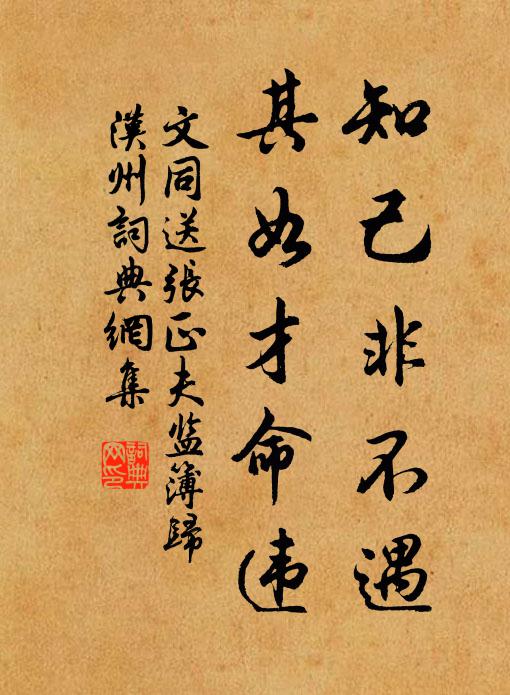 知己非不遇
其如才命违
文同送張正夫监簿歸
漢州詞典網集
詞典
网印